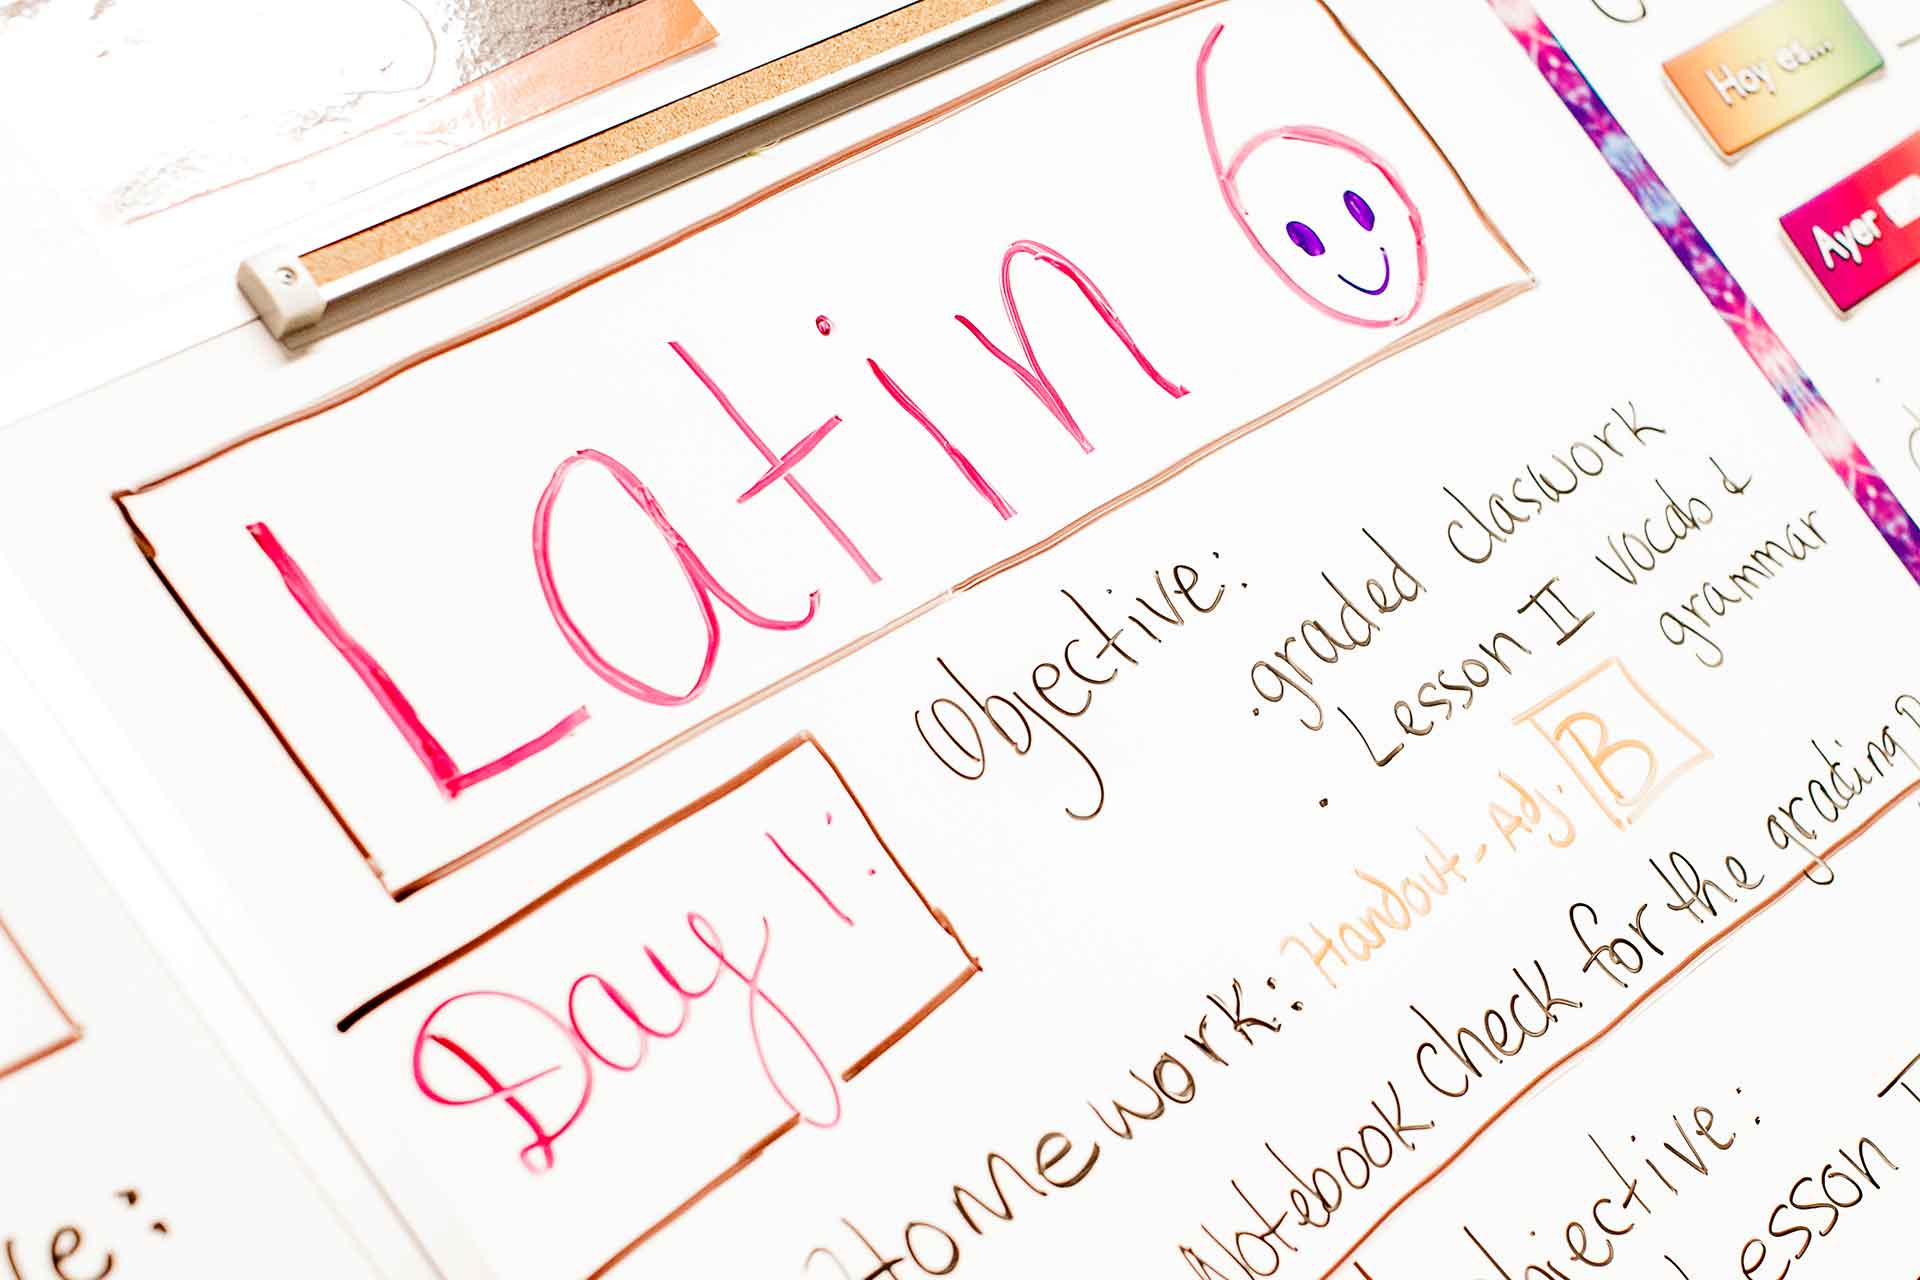 Latin 6
Hoy es...
Ayer
Day 1:
Objective:
• graded claswork
Lesson II vocab &
grammar
•
Homework: Handout - Adj. B
Notebook check for the grading
Objective:
Lesson